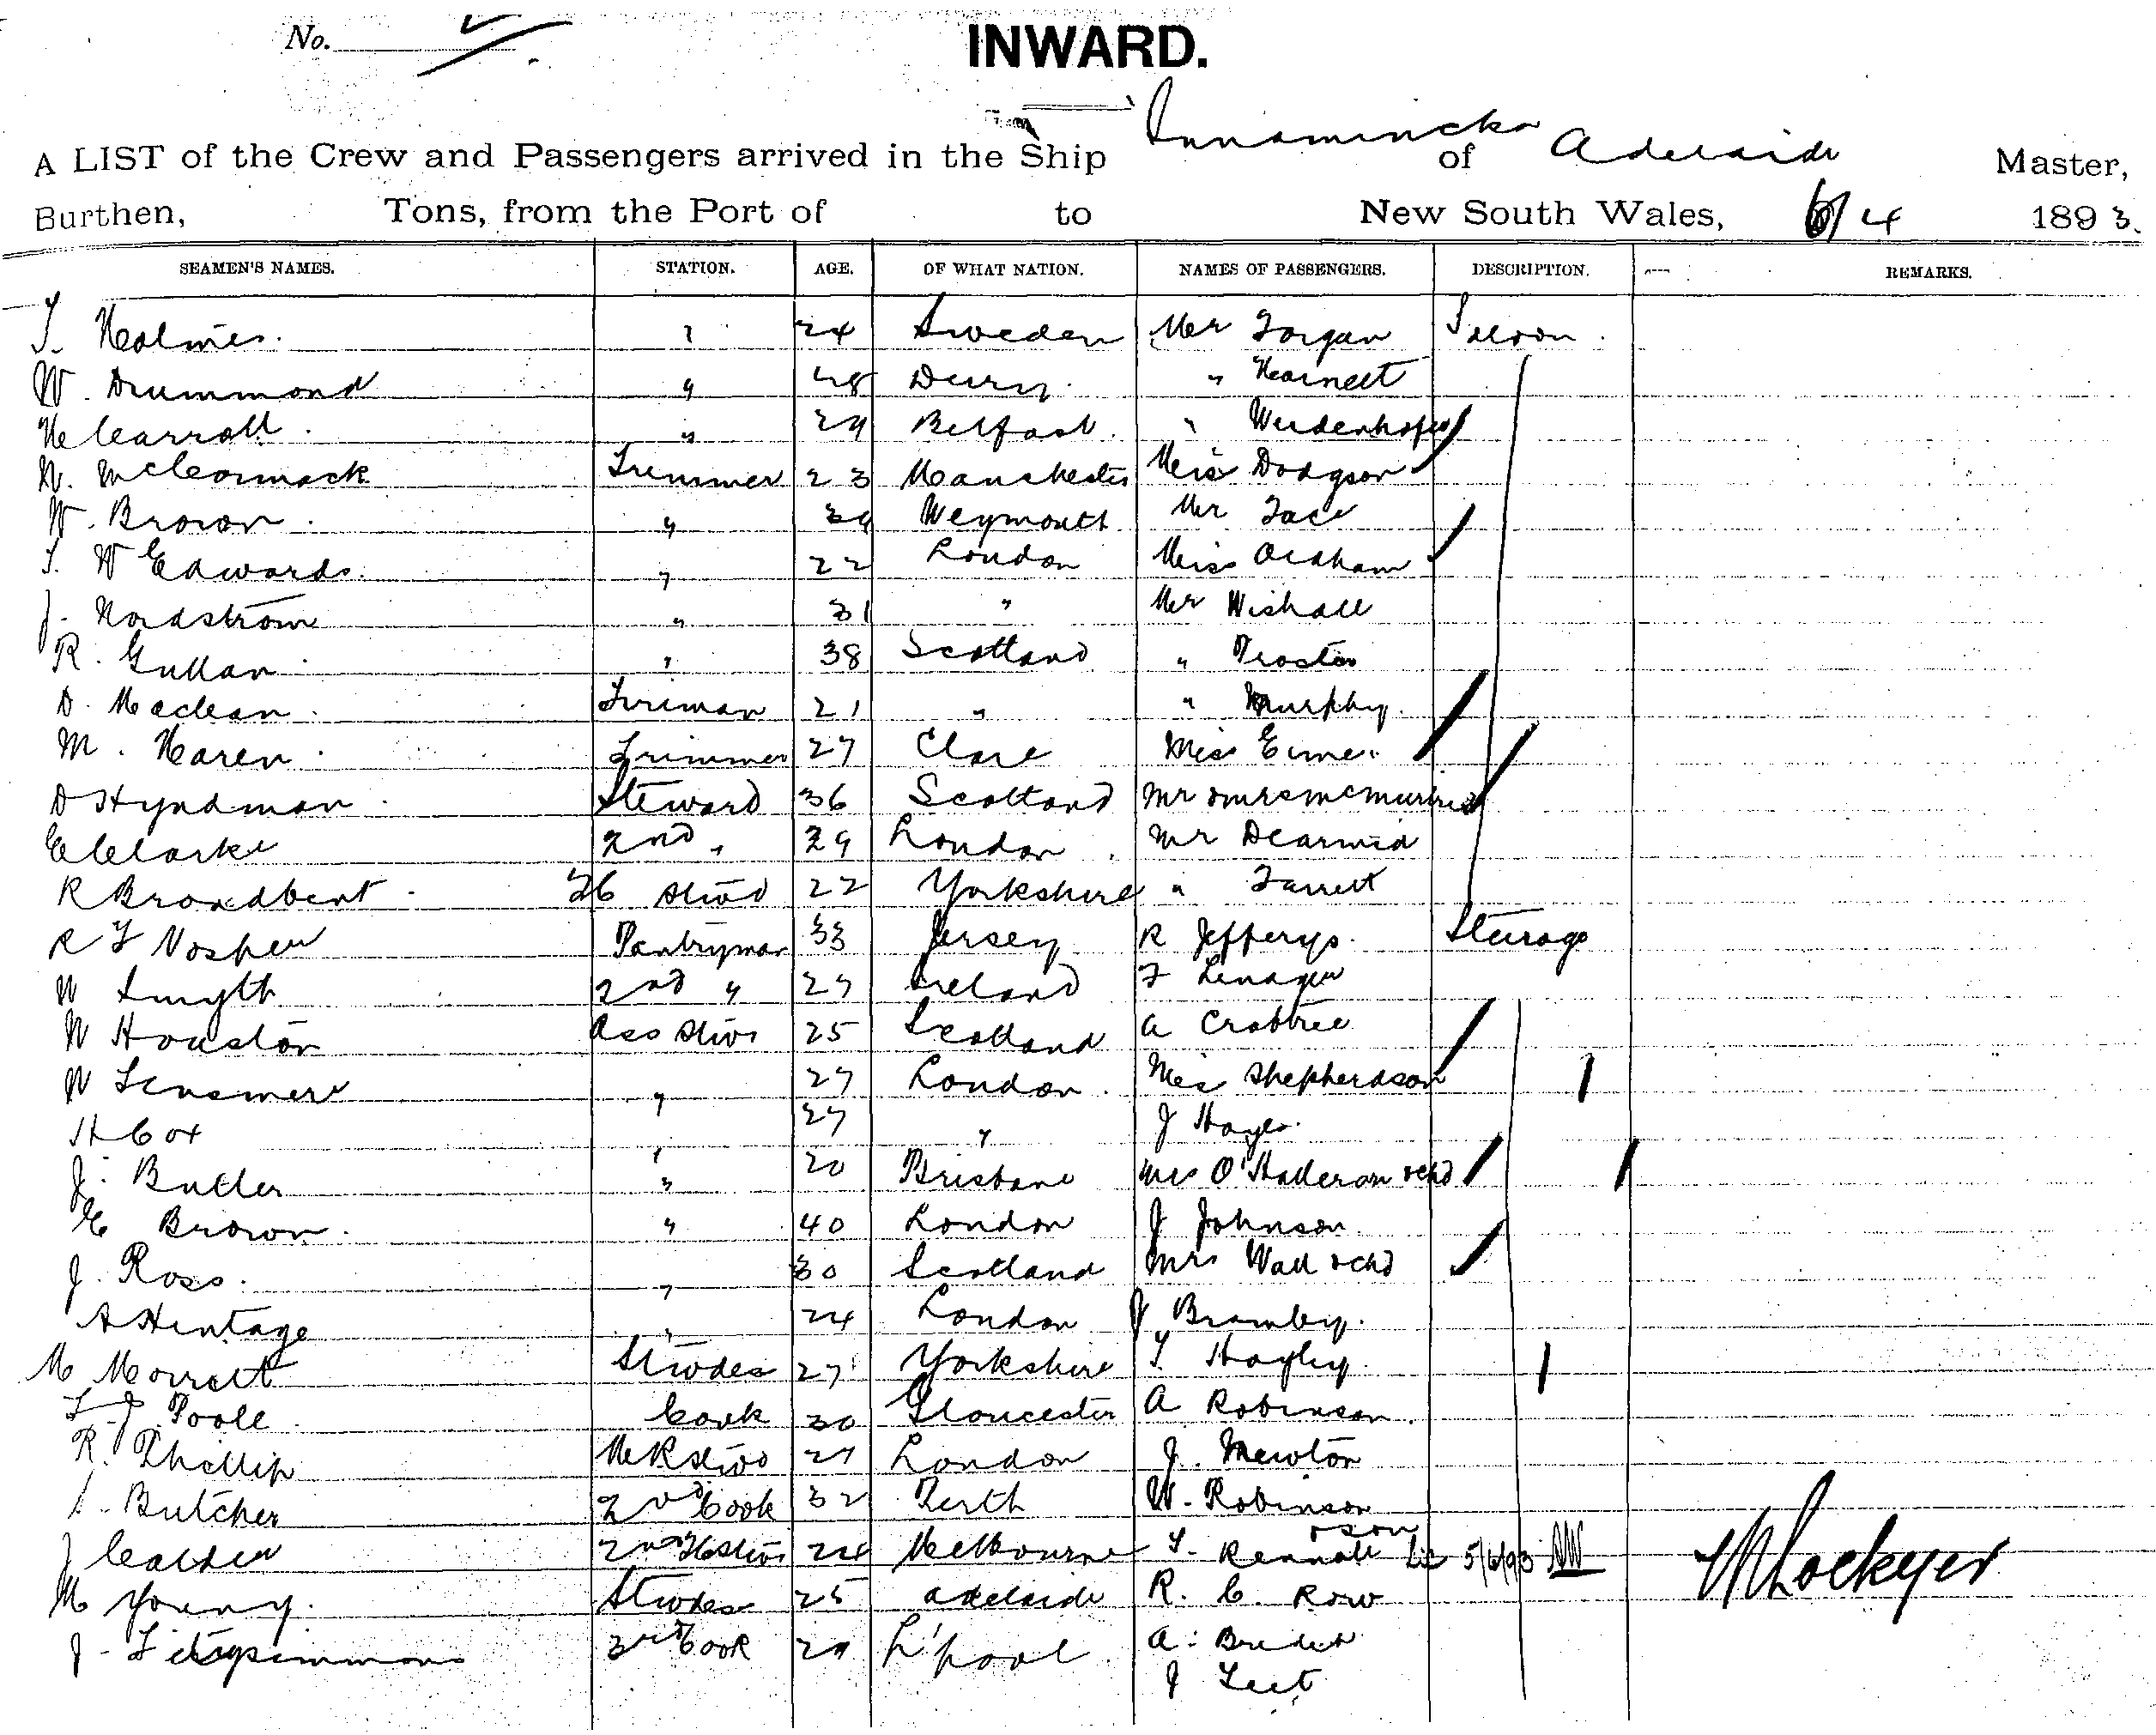 No.
INWARD.
A LIST of the Crew and Passengers arrived in the Ship Innamincka of Adelaide Master,
Burthen, Tons, from the Port of to New South Wales, 6/4 1893.
SEAMEN'S NAMES. STATION. AGE. OF WHAT NATION. NAMES OF PASSENGERS. DESCRIPTION. REMARKS.
T. Holmes. " 24 Sweden Mr Saloon.
W. Drummond " 48 Derry "
H Carroll. " 29 Belfast. "
N. McCormack Trimmer 23 Manchester Miss Dodgson
W. Brown. " 39 Weymouth Mr
T. W Edwards. " 22 London Miss Oldham
J. Nordstrom " 31 " Mr Wishall
R. Gullan " 38 Scotland "
D. Maclean. Fireman 21 " " Murphy.
M. Haren. Trimmer 27 Clare Miss
D Hyndman. Steward 36 Scotland Mr & Mrs McMurtrie
C Clarke 2nd " 29 London. Mr Dearmid
R Broadbent. Stwd 22 Yorkshire "
R F Vosper Pantryman 33 Jersey R Jefferys. Steerage
W Smyth 2nd " 27 Ireland F
W Houston Ass Stwd 25 Scotland A Crabtree
W " 27 London. Shepherdson
H Cox " 27 " J Hayes.
J. Butler " 20 Brisbane Mrs O'Halleran & chd
E Brown. " 40 London J Johnson.
J. Ross. " 30 Scotland Mrs Wall & chd
A Hentage " 24 London J Bromley.
M Morrell Stwdes 27 Yorkshire T. Hayley.
J. Poole Cook 30 Gloucester A Robinson.
R. Phillip Stwd London J. Newton
Butcher 2nd Cook 32 Perth W. Robinson
J 2nd Stwd 24 Melbourne & son
M Young. Stwdes 25 Adelaide R. C. Row
J. Fitzsimmons 3rd Cook 29 L'pool A.
J
5/6/93
Lockyer